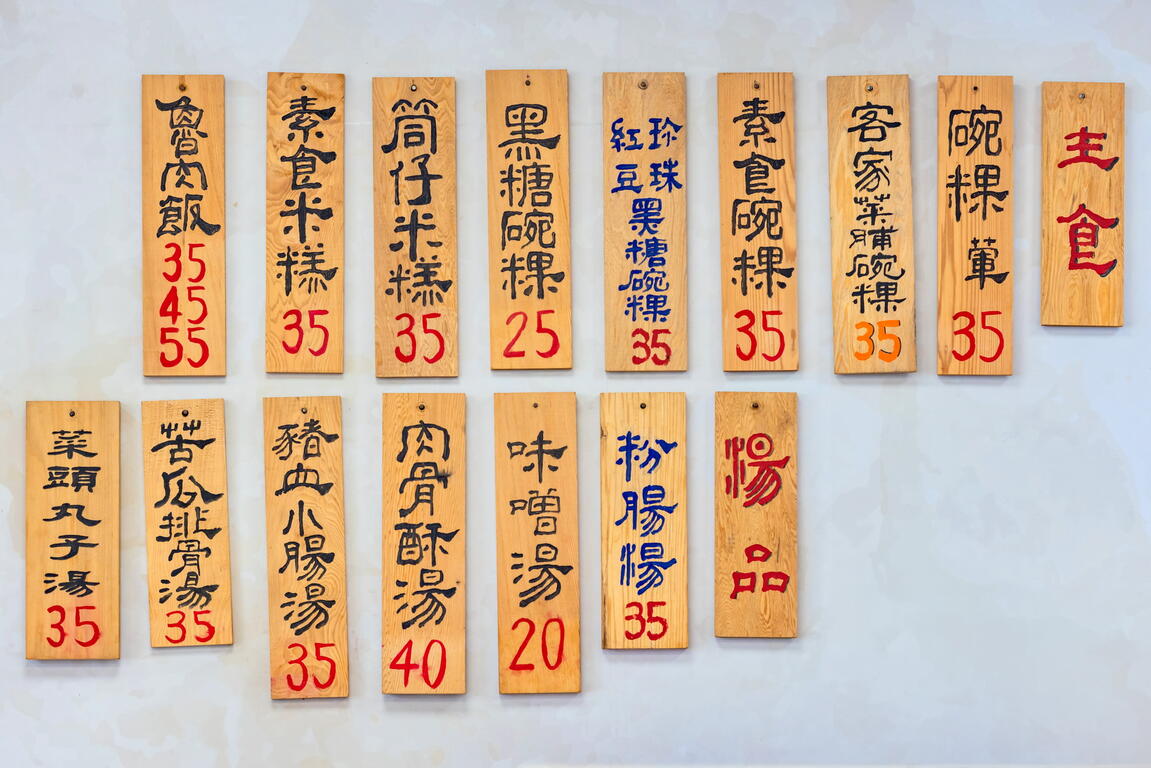 主食
碗粿 葷
35
客家菜脯碗粿
35
素食碗粿
35
珍珠
紅豆
黑糖碗粿
35
黑糖碗粿
25
筒仔米糕
35
素食米糕
35
魯肉飯
35
45
55
湯品
粉腸湯
35
味噌湯
20
肉骨酥湯
40
豬血小腸湯
35
苦瓜排骨湯
35
菜頭丸子湯
35